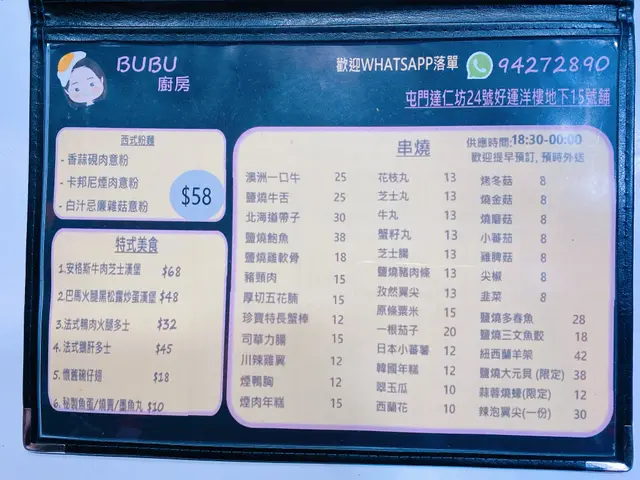 BUBU
廚房
歡迎WHATSAPP落單 94272890
屯門達仁坊24號好運洋樓地下15號舖
西式粉麵
- 香蒜硯肉意粉
- 卡邦尼煙肉意粉
- 白汁忌廉雜菇意粉
$58
特式美食
1.安格斯牛肉芝士漢堡 $68
2.巴馬火腿黑松露炒蛋漢堡 $48
3.法式鴨肉火腿多士 $32
4.法式鵝肝多士 $45
5.懷舊碗仔翅 $18
6.秘製魚蛋/燒賣/墨魚丸 $10
串燒
供應時間:18:30-00:00
歡迎提早預訂, 預時外送
澳洲一口牛 25
鹽燒牛舌 25
北海道帶子 30
鹽燒鮑魚 38
鹽燒雞軟骨 18
豬頸肉 15
厚切五花腩 15
珍寶特長蟹棒 12
司華力腸 15
川辣雞翼 12
煙鴨胸 12
煙肉年糕 15
花枝丸 13
芝士丸 13
牛丸 13
蟹籽丸 13
芝士腸 13
鹽燒豬肉條 13
孜然翼尖 13
原條粟米 15
一根茄子 20
日本小蕃薯 12
韓國年糕 12
翠玉瓜 10
西蘭花 10
烤冬菇 8
燒金菇 8
燒磨菇 8
小蕃茄 8
雞脾菇 8
尖椒 8
韭菜 8
鹽燒多春魚 28
鹽燒三文魚骹 18
紐西蘭羊架 42
鹽燒大元貝 (限定) 38
蒜蓉燒蠔(限定) 12
辣泡翼尖(一份) 30